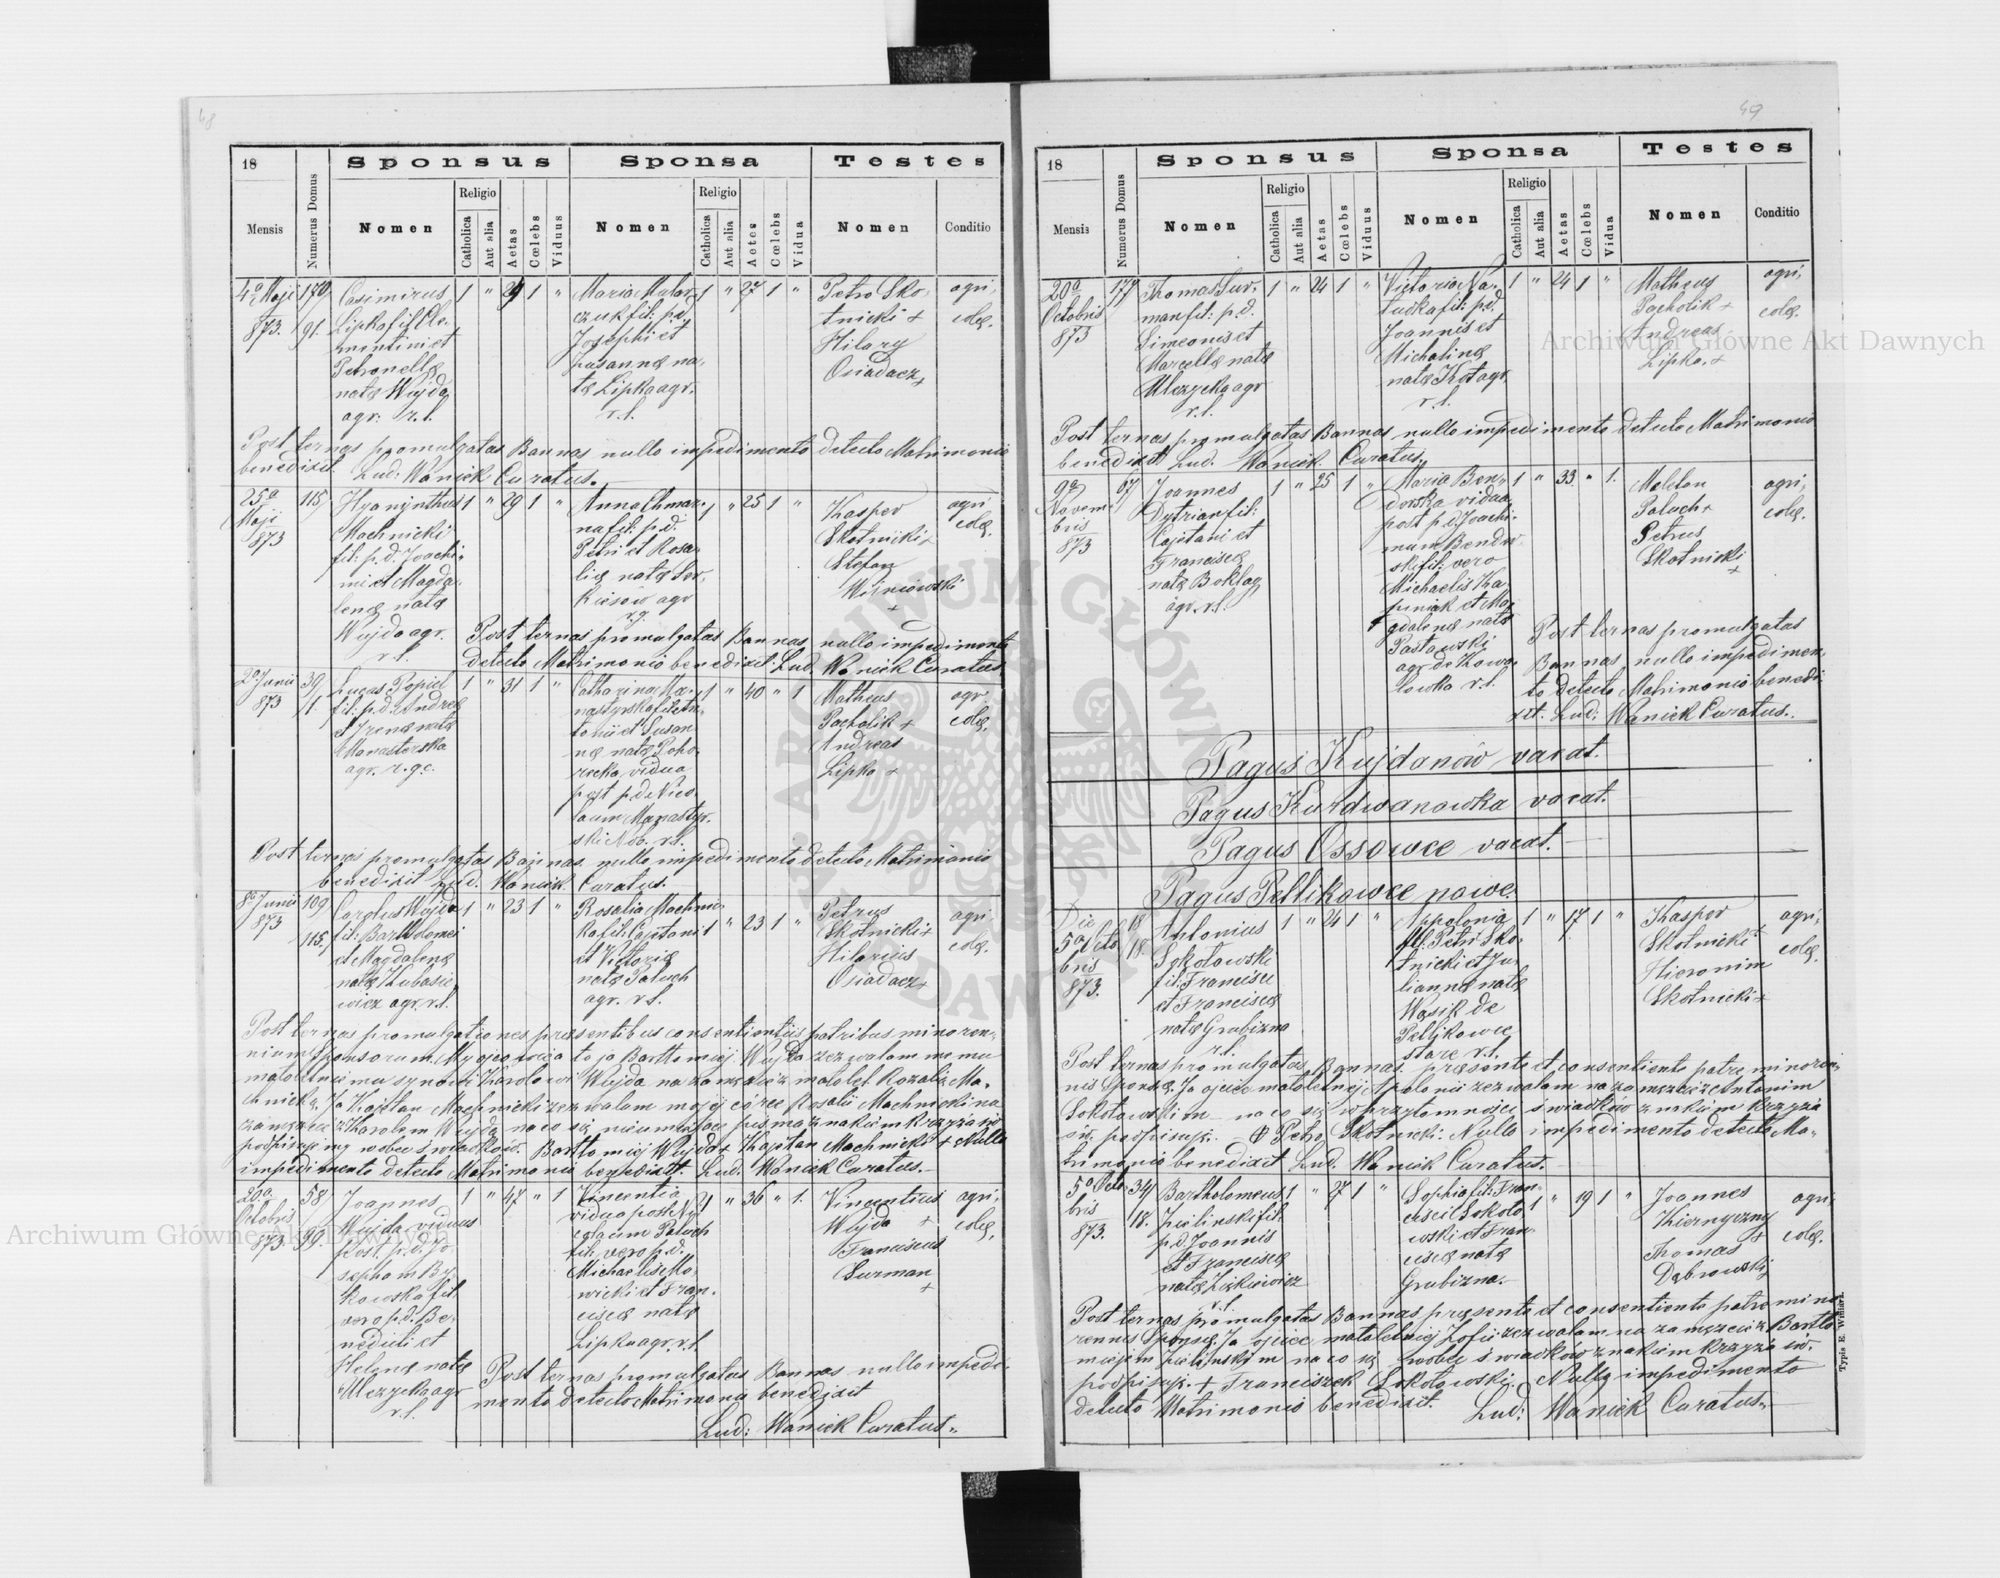 48
18
Sponsus
Sponsa
Testes
Mensis
Numerus Domus
Nomen
Religio
Catholica
Aut alia
Aetas
Cœlebs
Viduus
Nomen
Religio
Catholica
Aut alia
Aetes
Cœlebs
Vidua
Nomen
Conditio
4a Maji
873.
170
91.
Casimirus
Lipka fil: Cle-
mentini et
Petronellæ
natæ Wujda
agr: r.l.
1 " 29 1 "
Maria Malar-
czuk fil: p.d.
Josephi et
Susannæ na-
tæ Lipka agr.
r.l.
1 " 27 1 "
Petro Sko-
tnicki +
Hilary
Osiadacz +
agri-
colæ.
Post ternas promulgatas Bannas nullo impedimento detecto Matrimonio
benedixit Lud: Waniek Curatus.
25a
Maji
873
115
Hyacynthus
Machnicki
fil: p.d. Joachi-
mi et Magda-
lenæ natæ
Wujda agr.
r.l.
1 " 29 1 "
Anna Chmar-
na fil: p.d.
Petri et Rosa-
liæ natæ Ser-
kiesow agr
r.g.
1 " 25 1 "
Kasper
Skotnicki +
Stefan
Wisniowski
+
agri
colæ.
Post ternas promulgatas Bannas nullo impedimento
detecto Matrimonio benedixit Lud. Waniek Curatus
2a Junii
873
39
1.
Lucas Popiel
fil: p.d. Andreæ
Irenæ natæ
Manasterska
agr. r.g.c.
1 " 31 1 "
Catharina Ma-
nastyrska fil: An-
tonii et Susan
næ natæ Poho-
recka, vidua
post p.d. Nico-
laum Manastyr-
ski Nob. r.l.
1 " 40 " 1
Matheus
Pacholik +
Andreas
Lipka +
agr.
colæ.
Post ternas promulgatas Bannas nullo impedimento detecto Matrimonio
benedixit Lud. Waniek Curatus.
8a Junii
873
109
115
Carolus Wujda
fil: Bartholomei
et Magdalenæ
natæ Kubasie-
wicz agr. r.l.
1 " 23 1 "
Rosalia Machnic-
ka fil: Cajetani
et Victoriæ
natæ Paluch
agr. r.l.
1 " 23 1 "
Petrus
Skotnicki +
Hilarius
Osiadacz +
agri
colæ.
Post ternas promulgationes præsentibus consentientiis patribus minoren-
nium Sponsorum. My ojcowie ja Bartłomiej Wujda zezwalam memu
małoletniemu synowi Karolowi Wujda na zawarcie z małolet Rozalią Ma-
chnicką, Ja Kajetan Machnicki zezwalam mojej córce Rosalii Machnicki na
zamęzcie z Karolem Wujda, na co się nieumiejące pisma znakiem krzyża św.
podpisujemy wobec świadków. Bartłomiej Wujda + Kajetan Machnicki + Nullo
impedimento detecto Matrimonio benedixit Lud. Waniek Curatus.
20a
Octobris
873
58
99.
Joannes
Wujda viduus
post. p.d. Jo-
sepham By-
kowska fil.
vero p.d. Be-
nedicti et
Helenæ natæ
Mlezyka agr
r.l.
1 " 47 " 1
Vincentia
vidua post Ni-
colaum Paluch
fil: vero p.d.
Michaelis Mo-
wicki et Fran-
ciscæ natæ
Lipka agr. r.l.
1 " 36 " 1.
Vincentius
Wujda +
Franciscus
Surman
+
agri-
colæ.
Post ternas promulgatas Bannas nullo impedi-
mento detecto Matrimonio benedixit
Lud: Waniek Curatus.
49
18
Sponsus
Sponsa
Testes
Mensis
Numerus Domus
Nomen
Religio
Catholica
Aut alia
Aetas
Cœlebs
Viduus
Nomen
Religio
Catholica
Aut alia
Aetas
Cœlebs
Vidua
Nomen
Conditio
20a
Octobris
873
177
Thomas Sur-
man fil: p.d.
Simeonis et
Marcellæ natæ
Mlezyka agr
r.l.
1 " 24 1 "
Victoria Na-
tudka fil: p.d.
Joannis et
Michalinæ
natæ Kot agr.
r.l.
1 " 24 1 "
Matheus
Pacholik +
Andreas
Lipka. +
agri-
colæ.
Post ternas promulgatas Bannas nullo impedimento detecto Matrimonio
benedixit Lud. Waniek Curatus.
9a
Novem-
bris
873
67
Joannes
Dytrian fil:
Kajetani et
Franciscæ
natæ Boklag
agr. r.l.
1 " 25 1 "
Maria Ben-
dorska vidua
post p.d. Joachi-
mum Bendor-
ski fil: vero
Michaelis Ka-
pinjak et Ma-
gdalenæ natæ
Pastowski
agr. de Kowa-
lowka r.l.
1 " 33 " 1.
Meliton
Paluch +
Petrus
Skotnicki
+
agri-
colæ.
Post ternas promulgatas
Bannas nullo impedimen-
to detecto Matrimonio benedi-
xit. Lud: Waniek Curatus.
Pagus Kujdanów vacat.
Pagus Kurdwanowka vacat.
Pagus Ossowce vacat.
Pagus Petlikowce nowe.
Die
5a Octo
bris
873.
18
18.
Antonius
Sokołowski
fil: Francisci
et Franciscæ
natæ Grabizna
r.l.
1 " 24 1 "
Appolonia
fil. Petri Sko-
tnicki et Ju-
liannæ natæ
Wasik de
Petlikowce
stare r.l.
1 " 17 1 "
Kasper
Skotnicki +
Hieronim
Skotnicki +
agri-
colæ.
Post ternas promulgatas Bannas. præsente et consentiente patre minoren-
nis Sponsæ. Ja ojciec małoletniej Apolonii zezwalam na zamęzcie z Antonim
Sokołowskim na co się w przytomności świadków znakiem krzyża
św. podpisuję. + Petro Skotnicki. Nullo impedimento detecto Ma-
trimonio benedixit Lud. Waniek Curatus.
5a Octo
bris
873.
34
18.
Bartholomeus
Zielinski fil:
p.d. Joannis
et Franciscæ
natæ Zickiewicz
r.l.
1 " 27 1 "
Sophia fil: Fran-
cisci Sokoło-
wski et Fran-
ciscæ natæ
Grabizna.
1 " 19 1 "
Joannes
Kiernyczny
+
Thomas
Dąbrowski
agri-
colæ.
Post ternas promulgatas Bannas præsente et consentiente patre mino
rennis Sponsæ. Ja ojciec małoletniej Zofii zezwalam na zamęzcie z Bartło
miejem Zielinskim na co się wobec świadków znakiem krzyża św.
podpisuję. + Franciszek Sokołowski. Nullo impedimento
detecto Matrimonio benedixit. Lud: Waniek Curatus.
Typis E. Winiarz.
Archiwum Główne Akt Dawnych
Archiwum Główne Akt Dawnych
ARCHIWUM GŁÓWNE AKT DAWNYCH